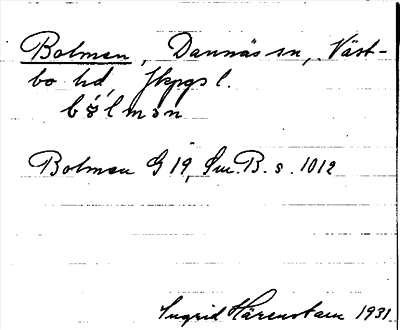 Bolmen, Dannäs sn, Väst-
bo hd, Jkpgs l.
bǿlmən
Bolmen G 19, Sm. B. s. 1012
Ingrid Härenstam 1931